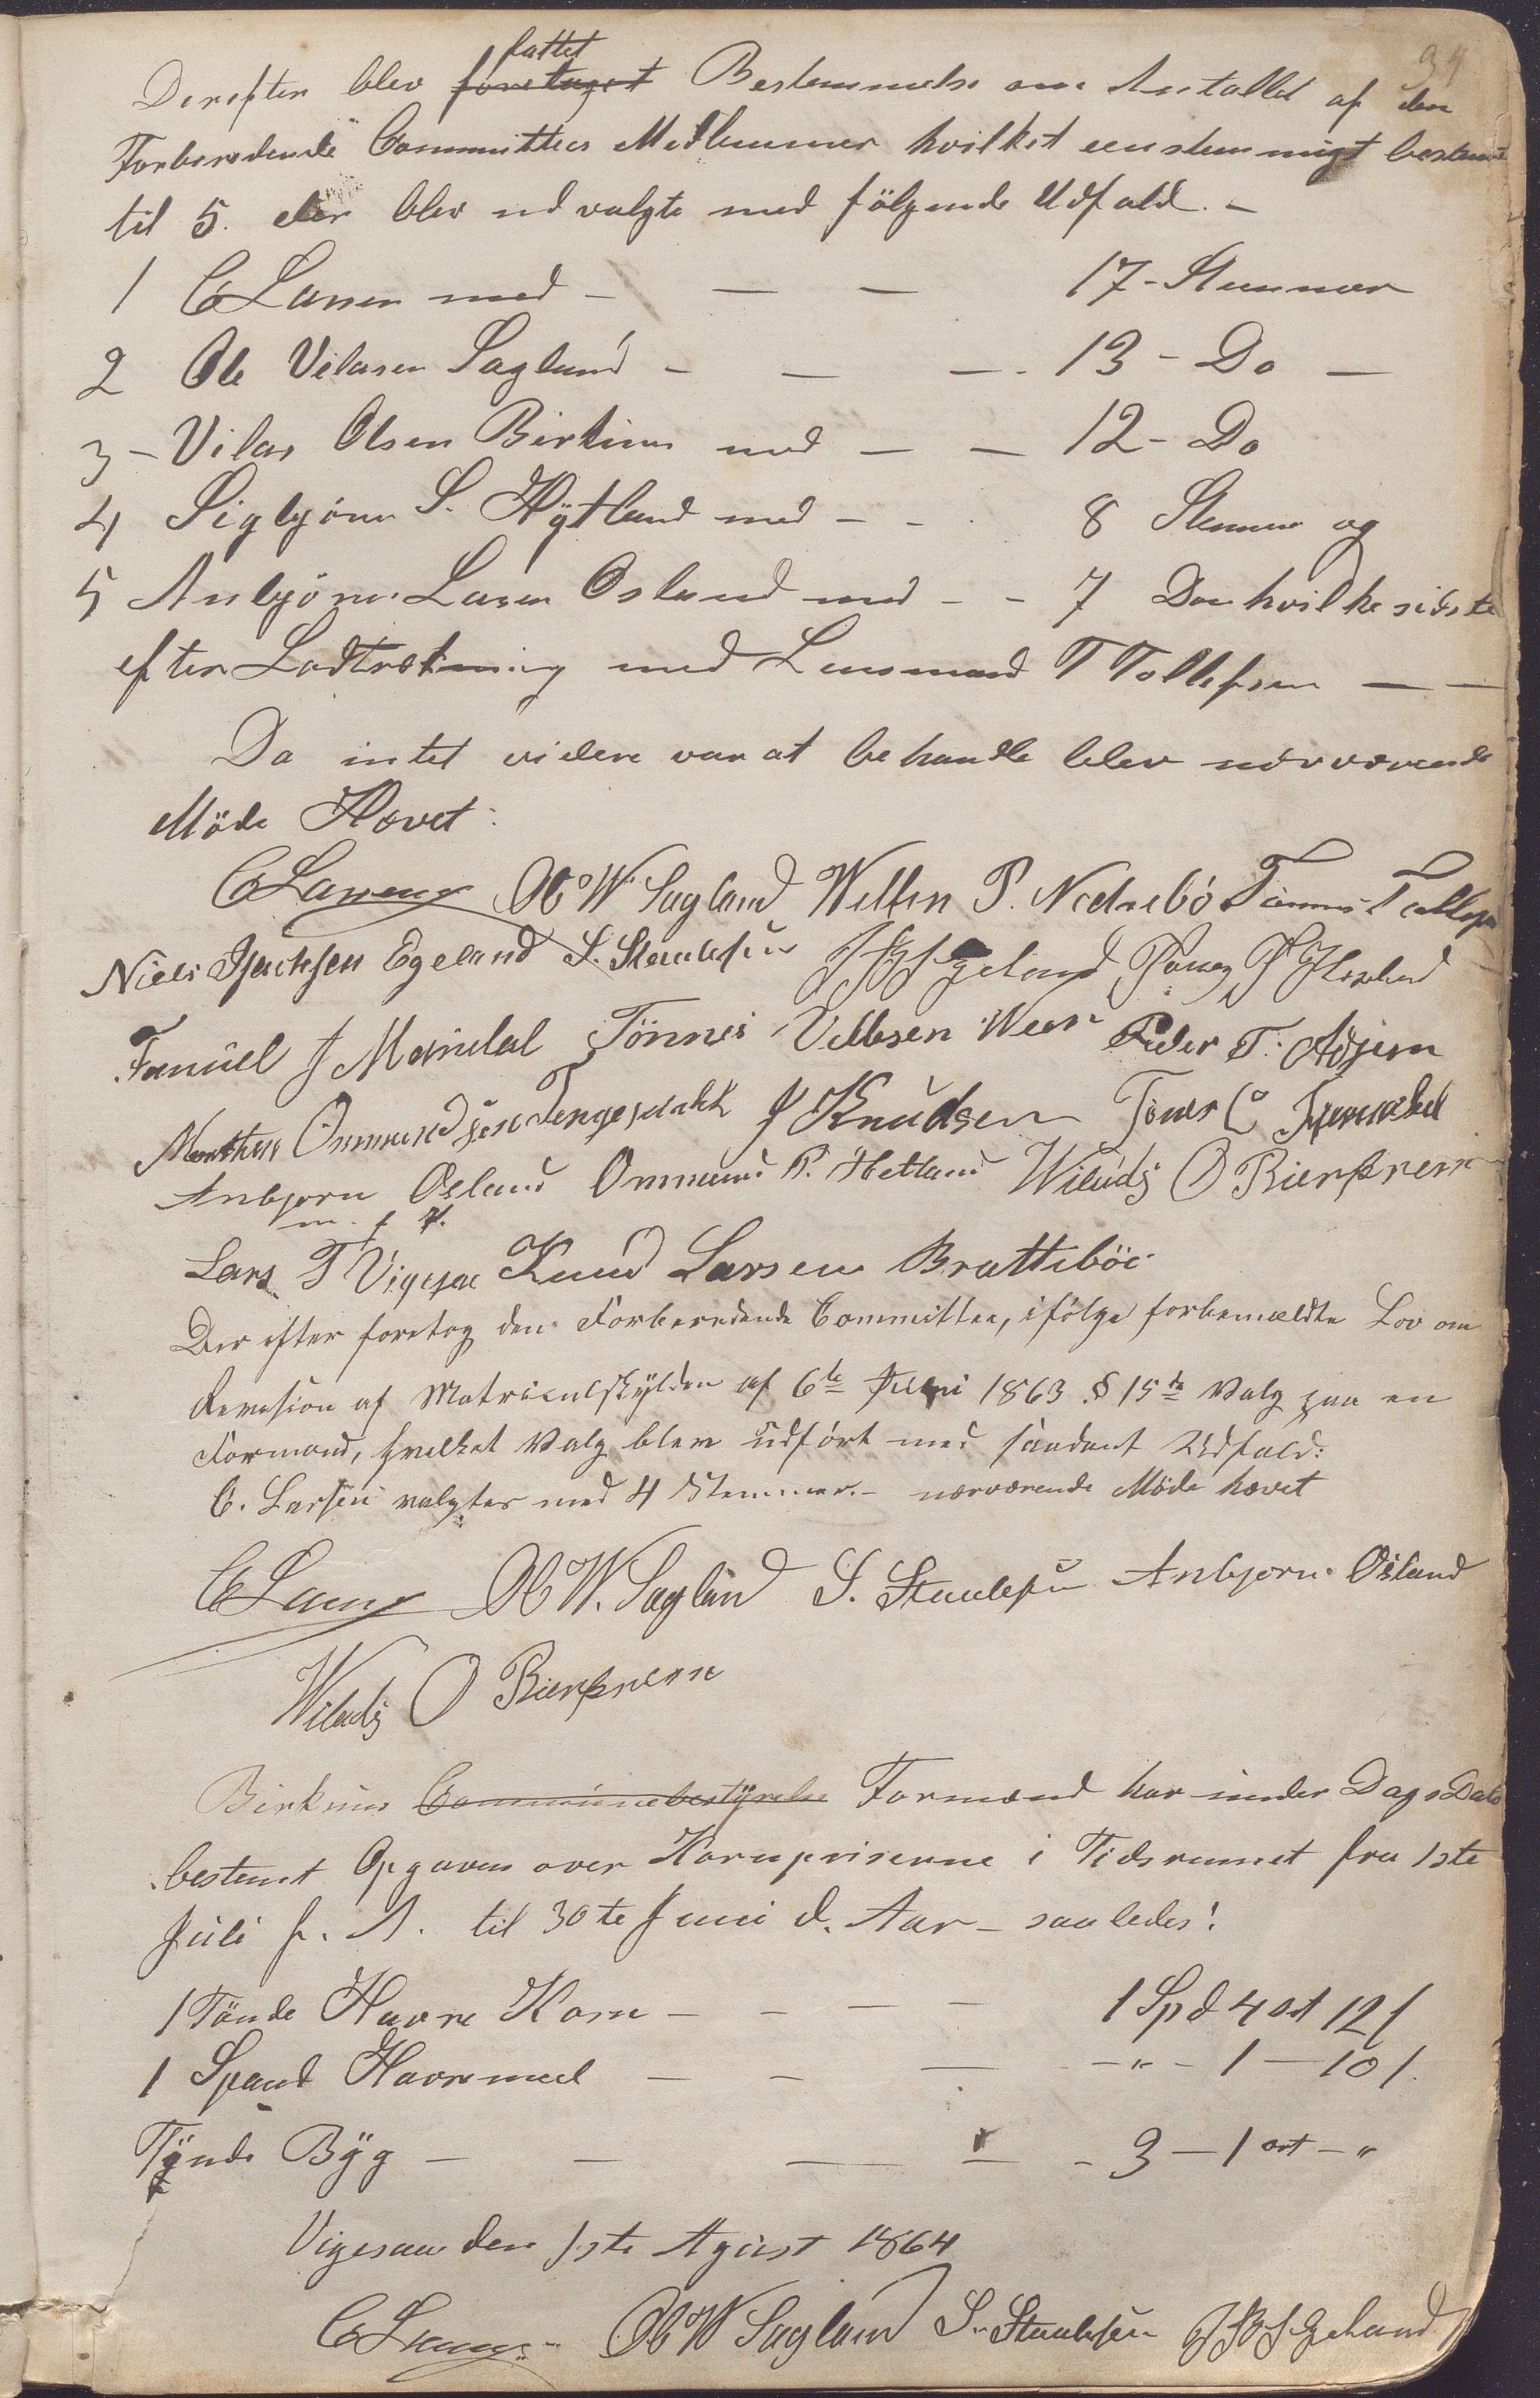 34
fattet
Derefter blev foretaget Bestemmelse om Antallet af den
Forberedende Committees Medlemmer hvilket eenstemmigt bestemt
til 5. der blev udvalgte med følgende Udfald. -
1 C Larsen med - — — 17 - Stemmer
2 Ole Vilasen Sagland - — — 13 - Do —
3 - Vilas Olsen Birkrem med — — 12 - Do
4 Sigbjørn S. Hytland med - - 8 Stemmer og
5 Anbjørn Larsen Osland med - - 7 Do hvilke sidste
efter Lodtrækning med Lensmand T Tollefsen — —
Da intet videre var at behandle blev nærværende
Møde Hævet.
C Larsen Ol W Sagland Wellen P. Nedrebø Tønnes Tollefsen
Niels Egeland S. Staalesen
Samuel J Mandal Tønnes Vellesen Peder T.
Morthen Ommundsen J Knudsen
Anbjørn Osland Ommund P. Hetland Wiladς O Bierkrem
m. f. P.
Lars T Vigesaa Knud Larsen Brattebøe
Der efter foretog den Forberedende Committee, ifølge forbemældte Lov om
Revision af Matriculskylden af 6te Juni 1863 § 15de Valg paa en
Formand, hvilket Valg blev udført med saadant Udfald:
C. Larsen valgtes med 4 Stemmer. - nærværende Møde hævet
C Larsen Ol W. Sagland S. Staalesen Anbjørn Osland
Wilads O Bierkrem
Birkrems Communebestyrelse Formænd har under Dags Dato
bestemt Opgaven over Kornpriserne i Tidsrummet fra 1ste
Juli f. A. til 30te Juni d. Aar - saaledes:
1 Tønde Havre Korn - - — — 1 Spd 4 ort 12 ſ
1 Spand Havremeel — - — - " - 1 — 10 ſ.
Tynde Byg — — — — - 3 — 1 ort - "
Vigesaa den 1ste Agust 1864
C Larsen Ol W Sagland S. Staalesen